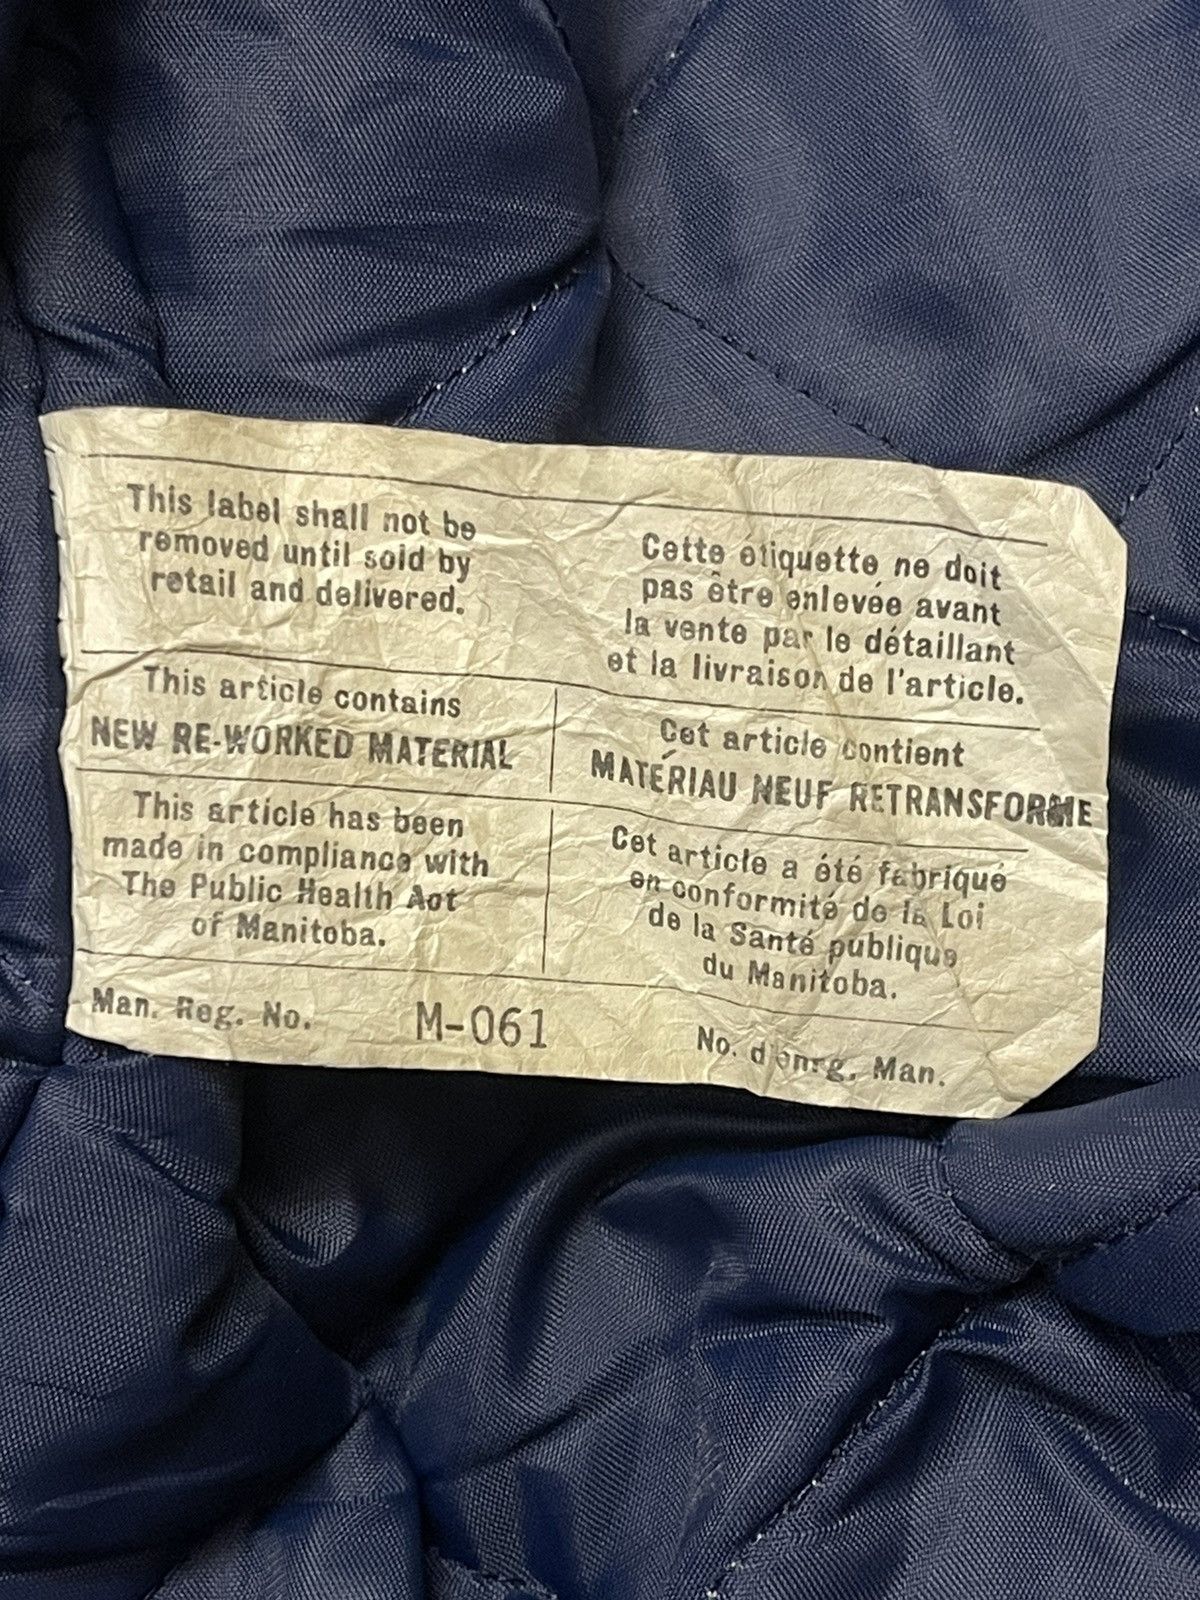 This label shall not be
removed until sold by
retail and delivered.
Cette etiquette ne doit
pas être enlevée avant
la vente par le détaillant
et la livraison de l'article.
This article contains
NEW RE-WORKED MATERIAL
Cet article contient
MATÉRIAU NEUF RETRANSFORME
This article has been
made in compliance with
The Public Health Act
of Manitoba.
Cet article a été fabriqué
en conformité de la Loi
de la Santé publique
du Manitoba.
Man. Reg. No. M-061 No. d'enrg. Man.